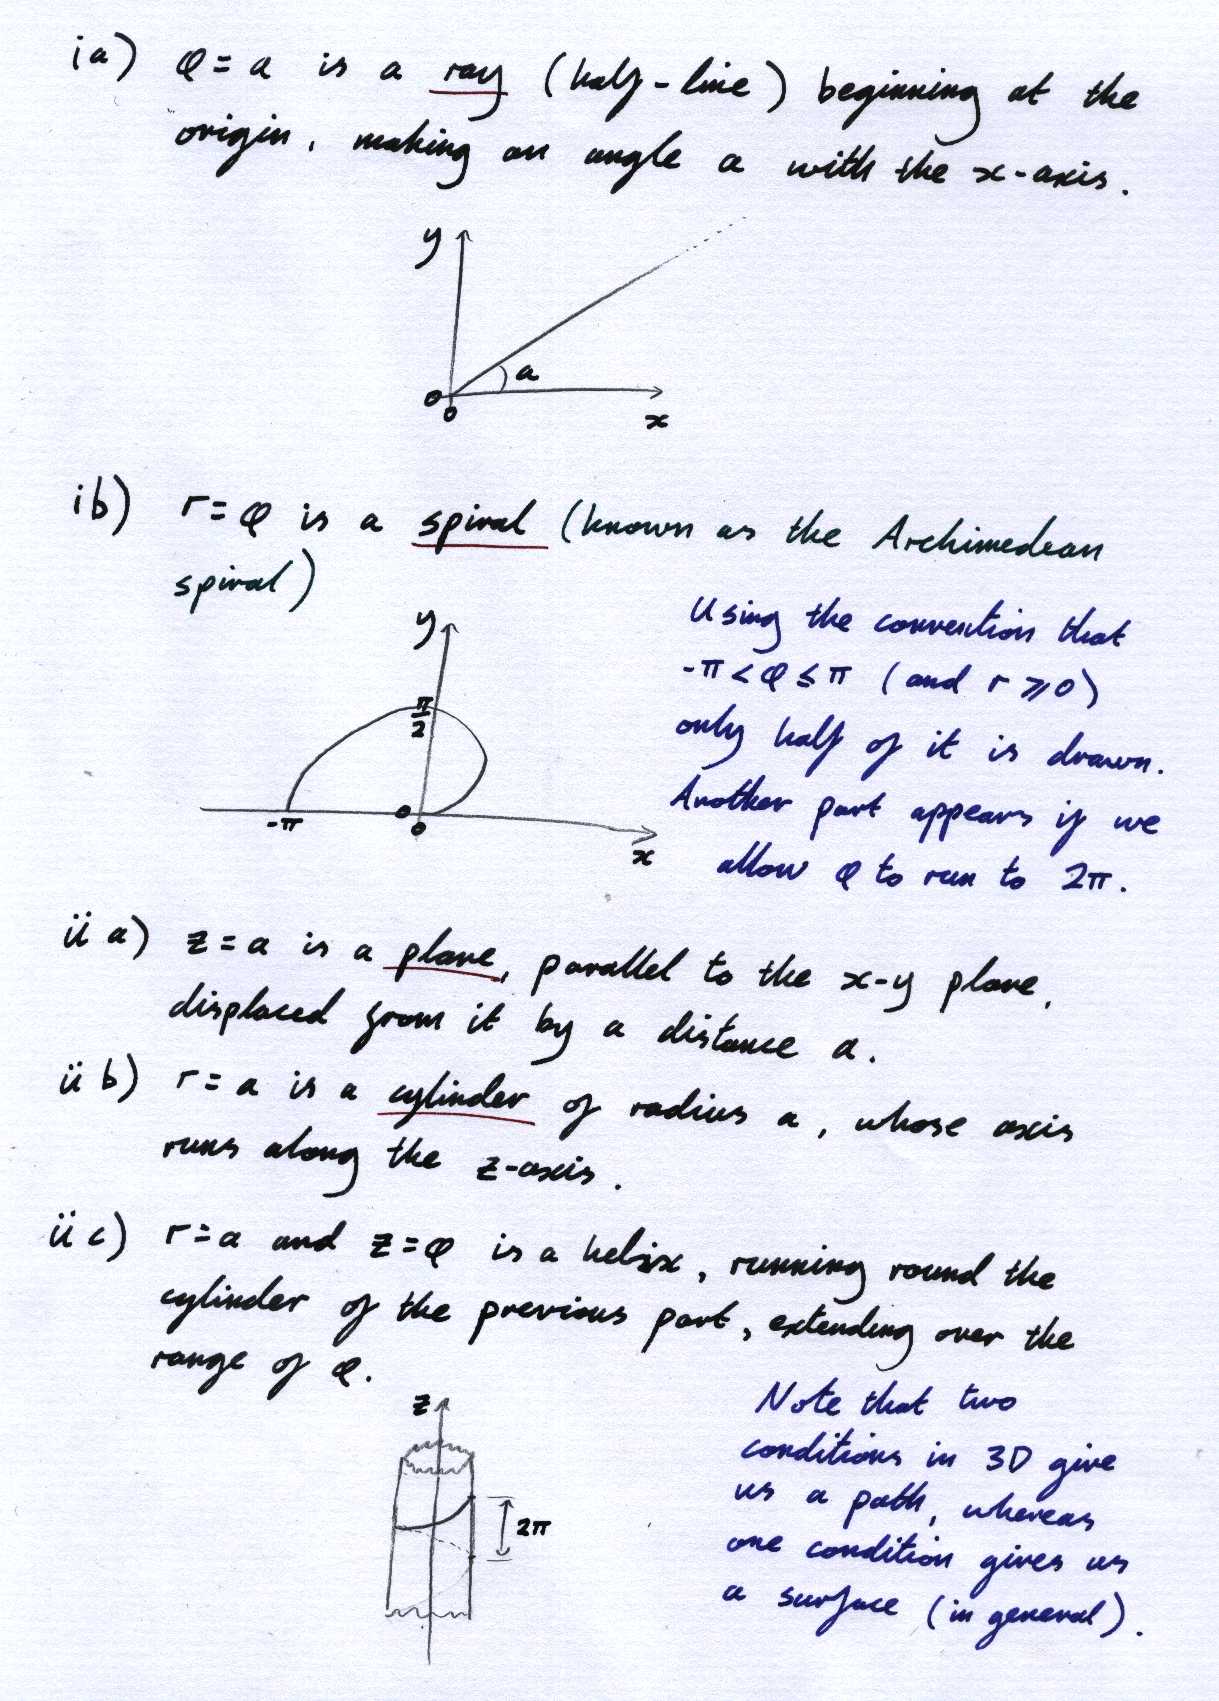 ia) φ = a is a ray (half-line) beginning at the
origin, making an angle a with the x-axis.
y
a
0
0
x
ib) r = φ is a spiral (known as the Archimedean
spiral)
Using the convention that
-π < φ ≤ π (and r ⩾ 0)
only half of it is drawn.
Another part appears if we
allow φ to run to 2π.
y
π/2
0
-π
0
x
ii a) z = a is a plane, parallel to the x-y plane,
displaced from it by a distance a.
ii b) r = a is a cylinder of radius a, whose axis
runs along the z-axis.
ii c) r = a and z = φ is a helix, running round the
cylinder of the previous part, extending over the
range of φ.
z
2π
Note that two
conditions in 3D give
us a path, whereas
one condition gives us
a surface (in general).